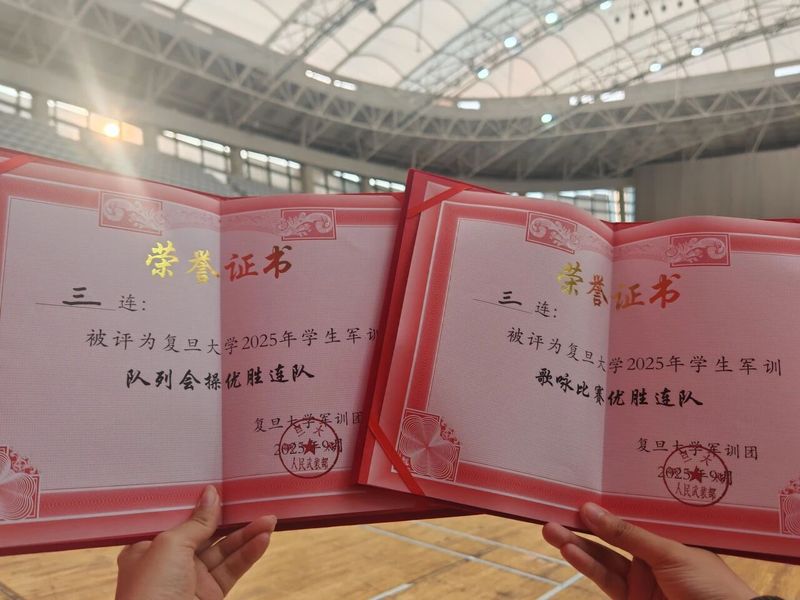 荣誉证书
三 连：
被评为复旦大学2025年学生军训
队列会操优胜连队
复旦大学军训团
2025年9月
人民武装部
荣誉证书
三 连：
被评为复旦大学2025年学生军训
歌咏比赛优胜连队
复旦大学军训团
2025年9月
人民武装部